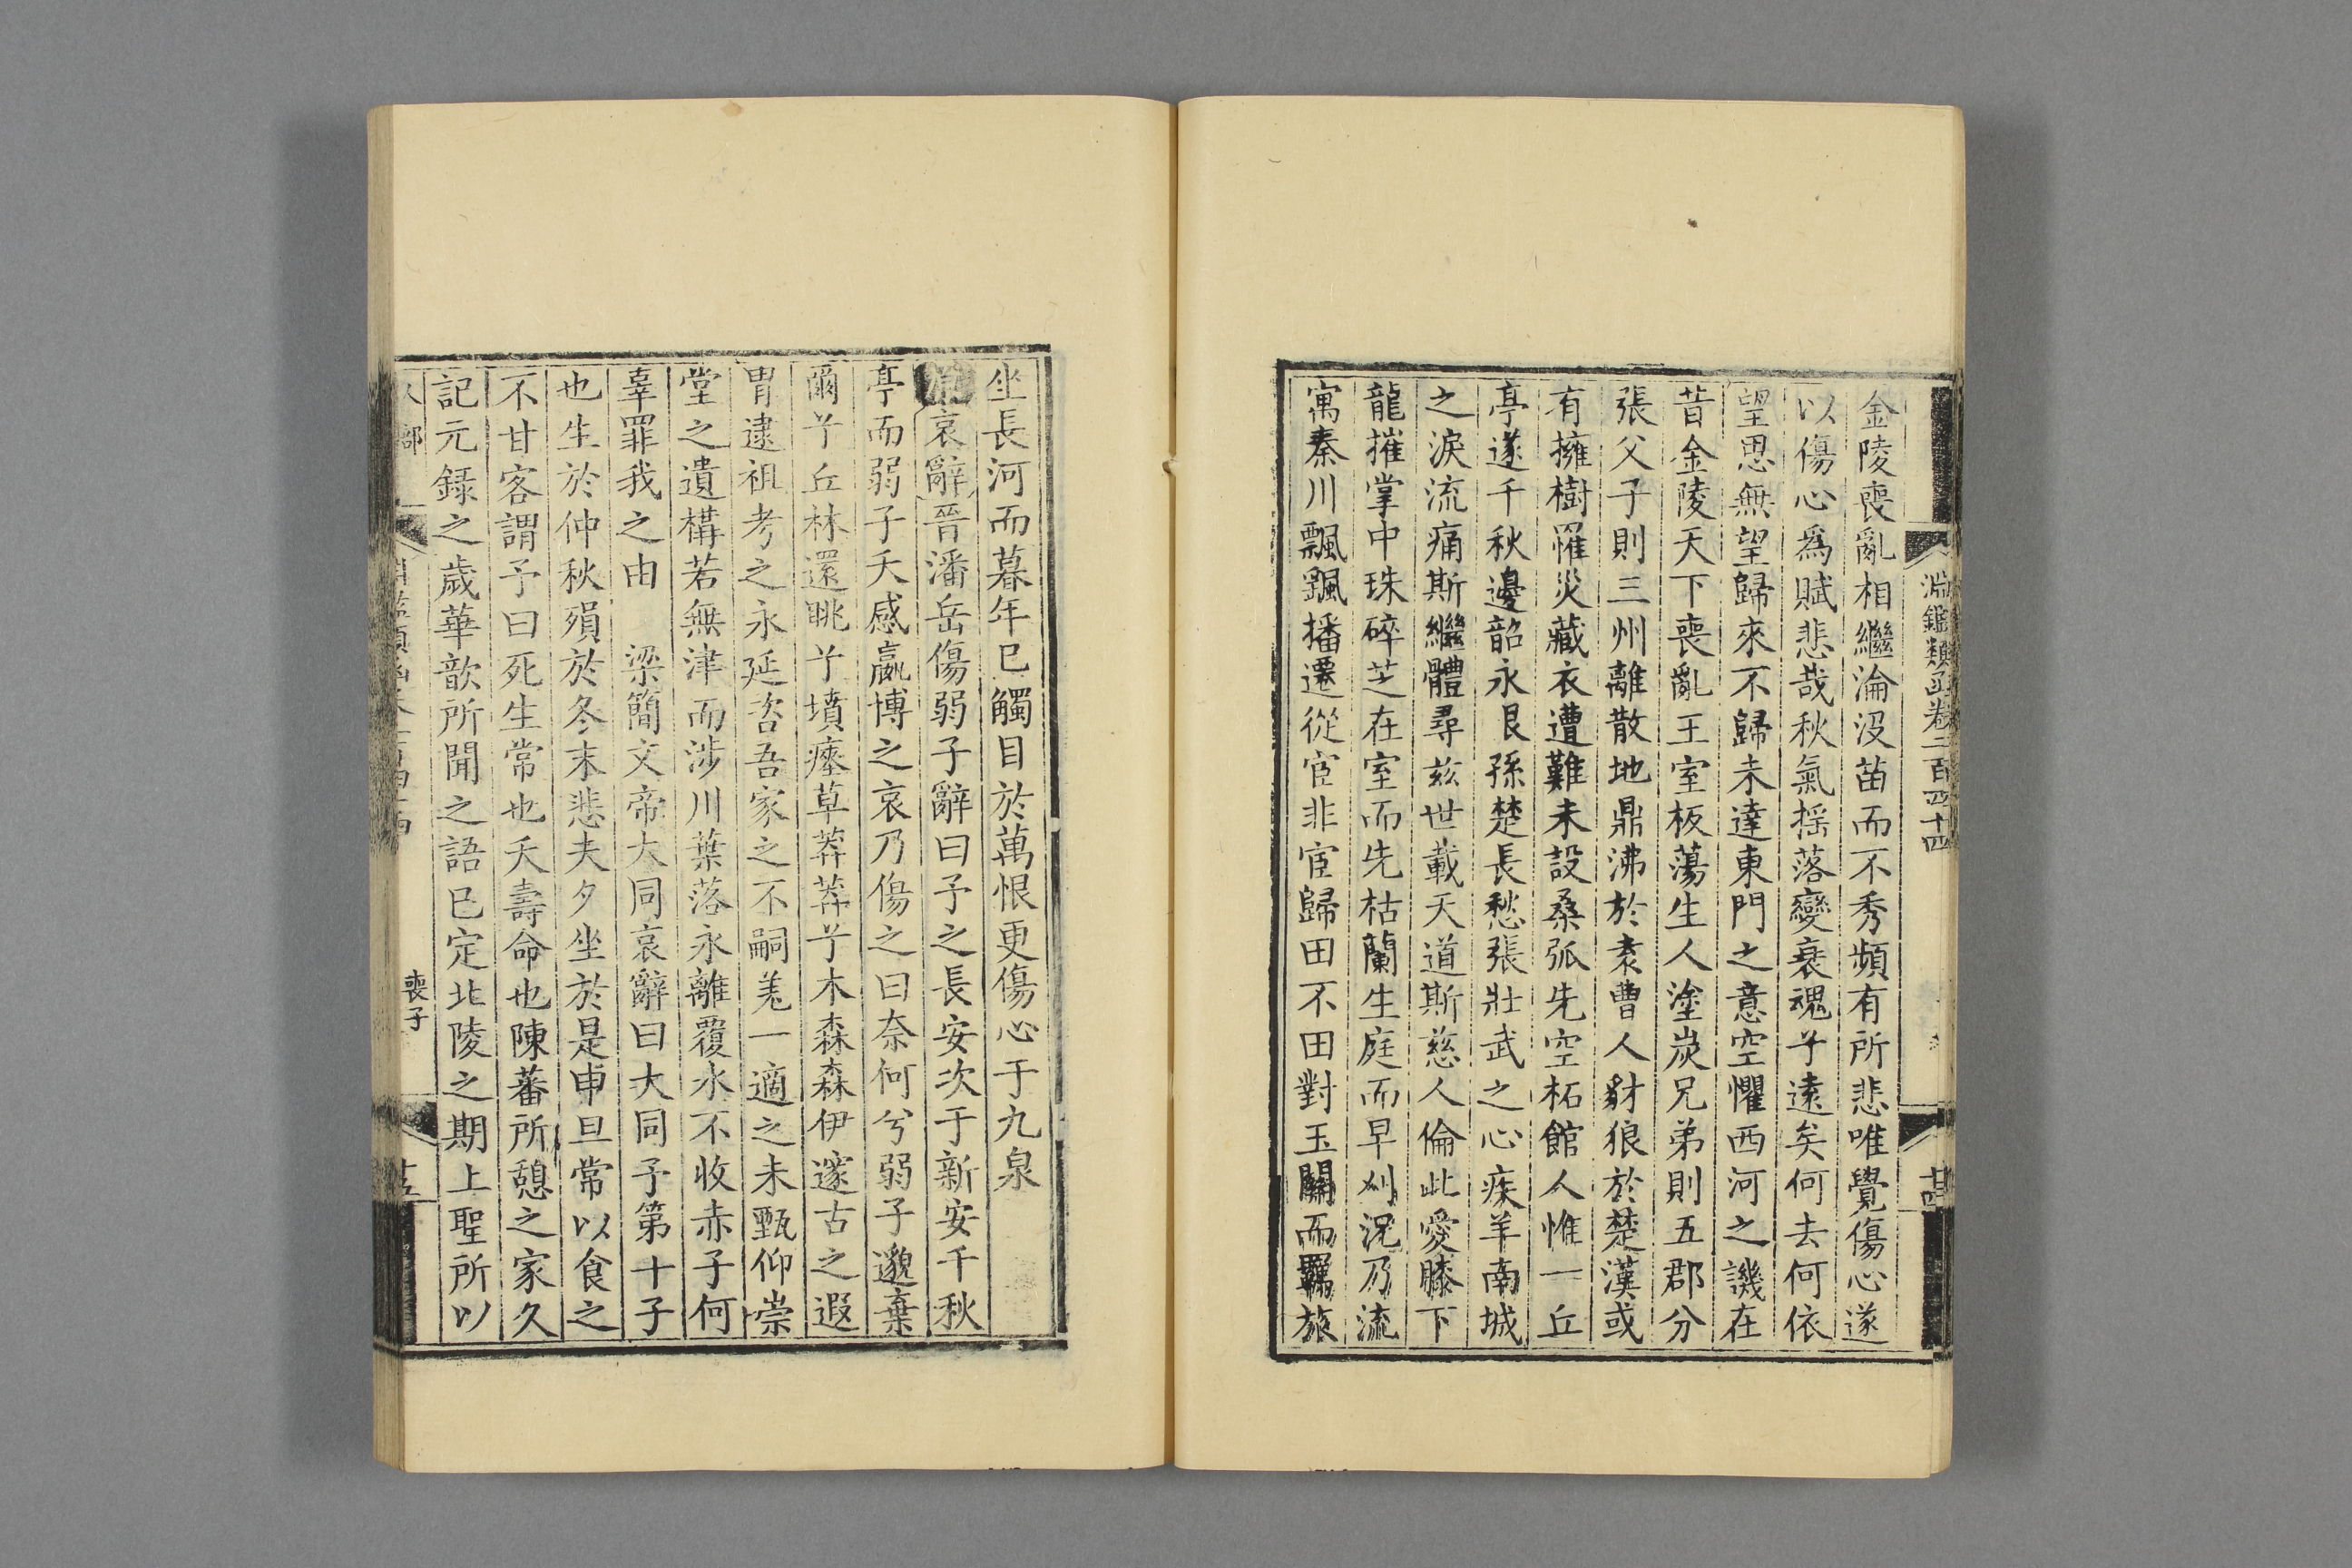 淵鑑類函卷二百四十四
廿四
金陵喪亂相繼淪沒苗而不秀頻有所悲唯覺傷心遂
以傷心爲賦悲哉秋氣搖落變衰魂兮遠矣何去何依
望思無望歸來不歸未達東門之意空懼西河之譏在
昔金陵天下喪亂王室板蕩生人塗炭兄弟則五郡分
張父子則三州離散地鼎沸於袁曹人豺狼於楚漢或
有擁樹罹災藏衣遭難未設桑弧先空柘館人惟一丘
亭遂千秋邊韶永恨孫楚長愁張壯武之心疾羊南城
之淚流痛斯繼體尋茲世載天道斯慈人倫此愛膝下
龍摧掌中珠碎芝在室而先枯蘭生庭而早刈況乃流
寓秦川飄颻播遷從宦非宦歸田不田對玉關而羈旅
坐長河而暮年已觸目於萬恨更傷心于九泉
哀辭晉潘岳傷弱子辭曰予之長安次于新安千秋
亭而弱子夭感嬴博之哀乃傷之曰奈何兮弱子邈棄
爾兮丘林還眺兮墳瘞草莽莽兮木森森伊邃古之遐
胄逮祖考之永延咨吾家之不嗣羌一適之未甄仰崇
堂之遺構若無津而涉川葉落永離覆水不收赤子何
辜罪我之由　梁簡文帝大同哀辭曰大同予第十子
也生於仲秋殞於冬末悲夫夕坐於是申旦常以食之
不甘客謂予曰死生常也夭壽命也陳蕃所憩之家久
記元錄之歲華歆所聞之語已定北陵之期上聖所以
人部
喪子